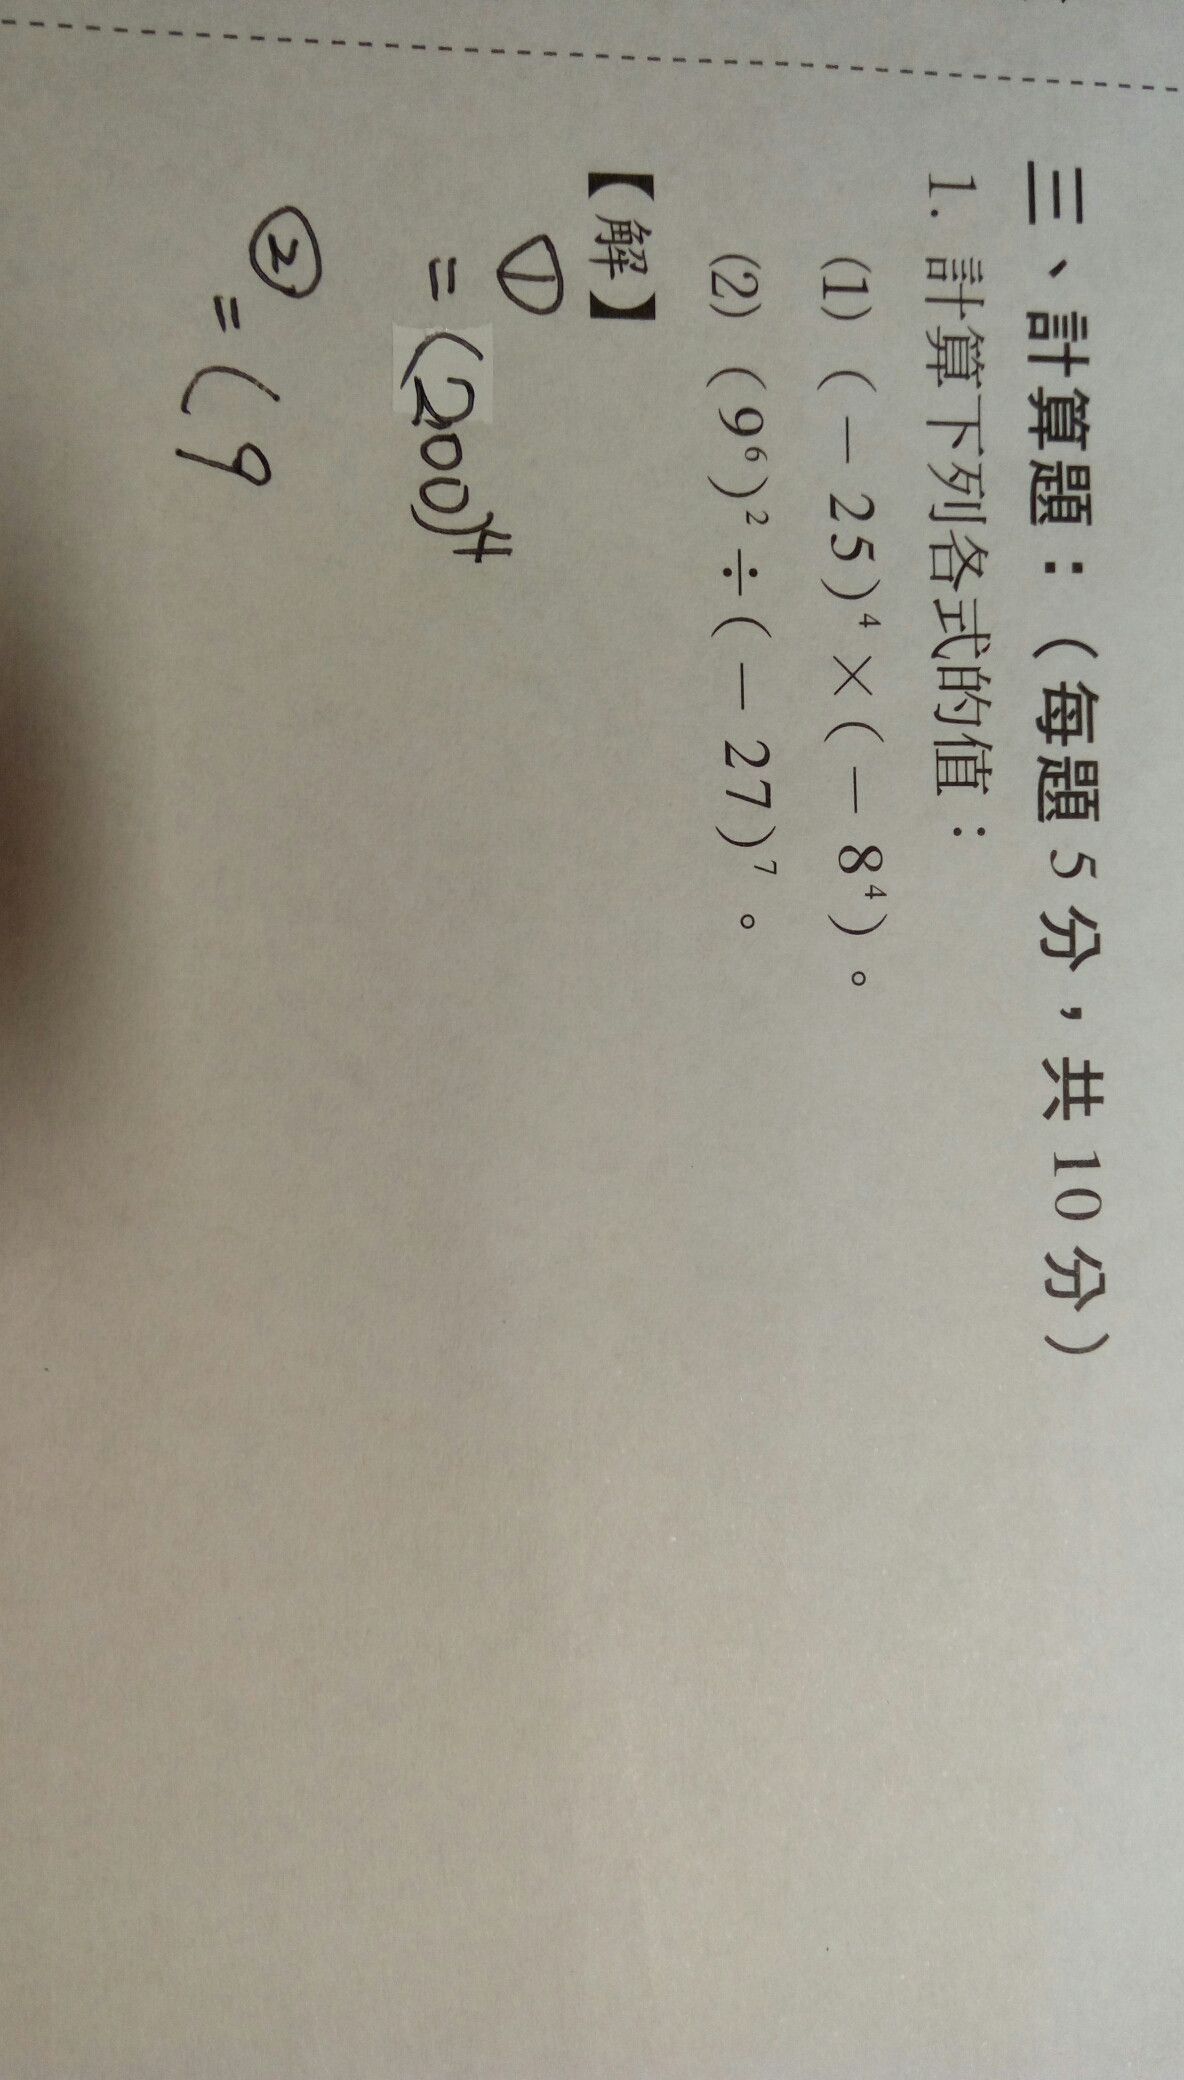 三、計算題：(每題 5 分，共 10 分)
1. 計算下列各式的值：
(1) (－25)⁴×(－8⁴)。
(2) (9⁶)²÷(－27)⁷。
【解】
①
=(200)⁴
②
=(9